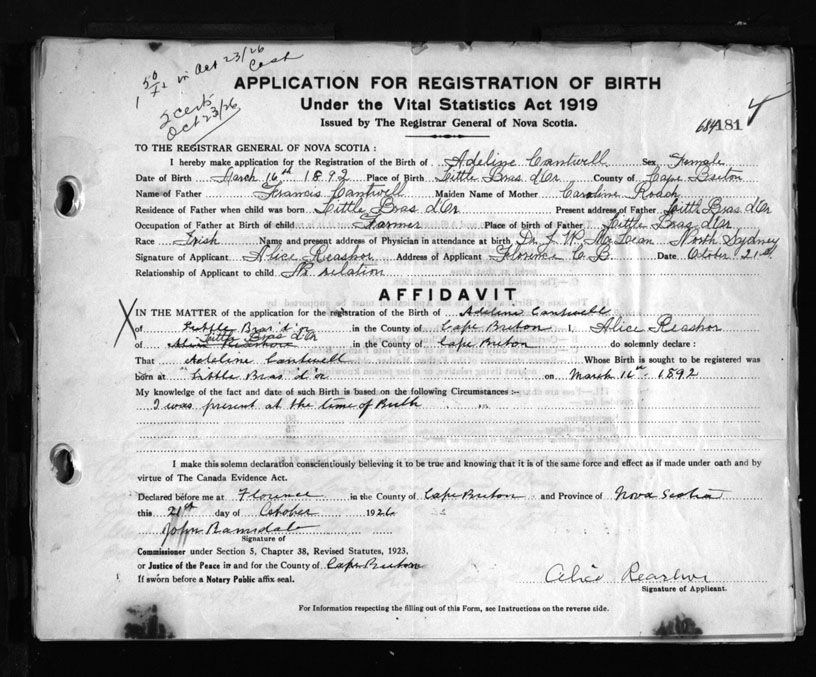 1 50 in Oct 23/26
Cash
2 certs
Oct 23/26
APPLICATION FOR REGISTRATION OF BIRTH
Under the Vital Statistics Act 1919
Issued by The Registrar General of Nova Scotia.
684181
TO THE REGISTRAR GENERAL OF NOVA SCOTIA :
I hereby make application for the Registration of the Birth of Adeline Cantwell Sex Female
Date of Birth March 16th 1892 Place of Birth Little Bras d'Or County of Cape Breton
Name of Father Francis Cantwell Maiden Name of Mother Caroline Roach
Residence of Father when child was born Little Bras d'Or Present address of Father Little Bras d'Or
Occupation of Father at Birth of child Farmer Place of birth of Father Little Bras d'Or
Race Irish Name and present address of Physician in attendance at birth Dr. McLean North Sydney
Signature of Applicant Alice Reashor Address of Applicant Florence C.B. Date October 21st
Relationship of Applicant to child No relation
AFFIDAVIT
X
IN THE MATTER of the application for the registration of the Birth of Adeline Cantwell
of Little Bras d'or in the County of Cape Breton I, Alice Reashor
of Little Bras d'Or in the County of Cape Breton do solemnly declare :
That Adeline Cantwell Whose Birth is sought to be registered was
born at Little Bras d'or on March 16th 1892
My knowledge of the fact and date of such Birth is based on the following Circumstances :-
I was present at the time of Birth
I make this solemn declaration conscientiously believing it to be true and knowing that it is of the same force and effect as if made under oath and by
virtue of The Canada Evidence Act.
Declared before me at Florence in the County of Cape Breton and Province of Nova Scotia
this 21st day of October 1926
John
Signature of
Commissioner under Section 5, Chapter 38, Revised Statutes, 1923,
or Justice of the Peace in and for the County of Cape Breton
If sworn before a Notary Public affix seal.
Alice Reashor
Signature of Applicant.
For Information respecting the filling out of this Form, see Instructions on the reverse side.